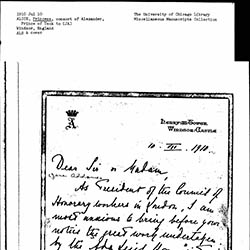 1910 Jul 10
ALICE, Princess, consort of Alexander,
Prince of Teck to [?A]
Windsor, England
ALS & cover
The University of Chicago Library
Miscellaneous Manuscripts Collection
A
Henry III Tower,
Windsor Castle
10 1910.
Dear Sir or Madam
As President of the Council of
Honorary workers in London, I am
most anxious to bring before your
notice the great work undertaken
by the